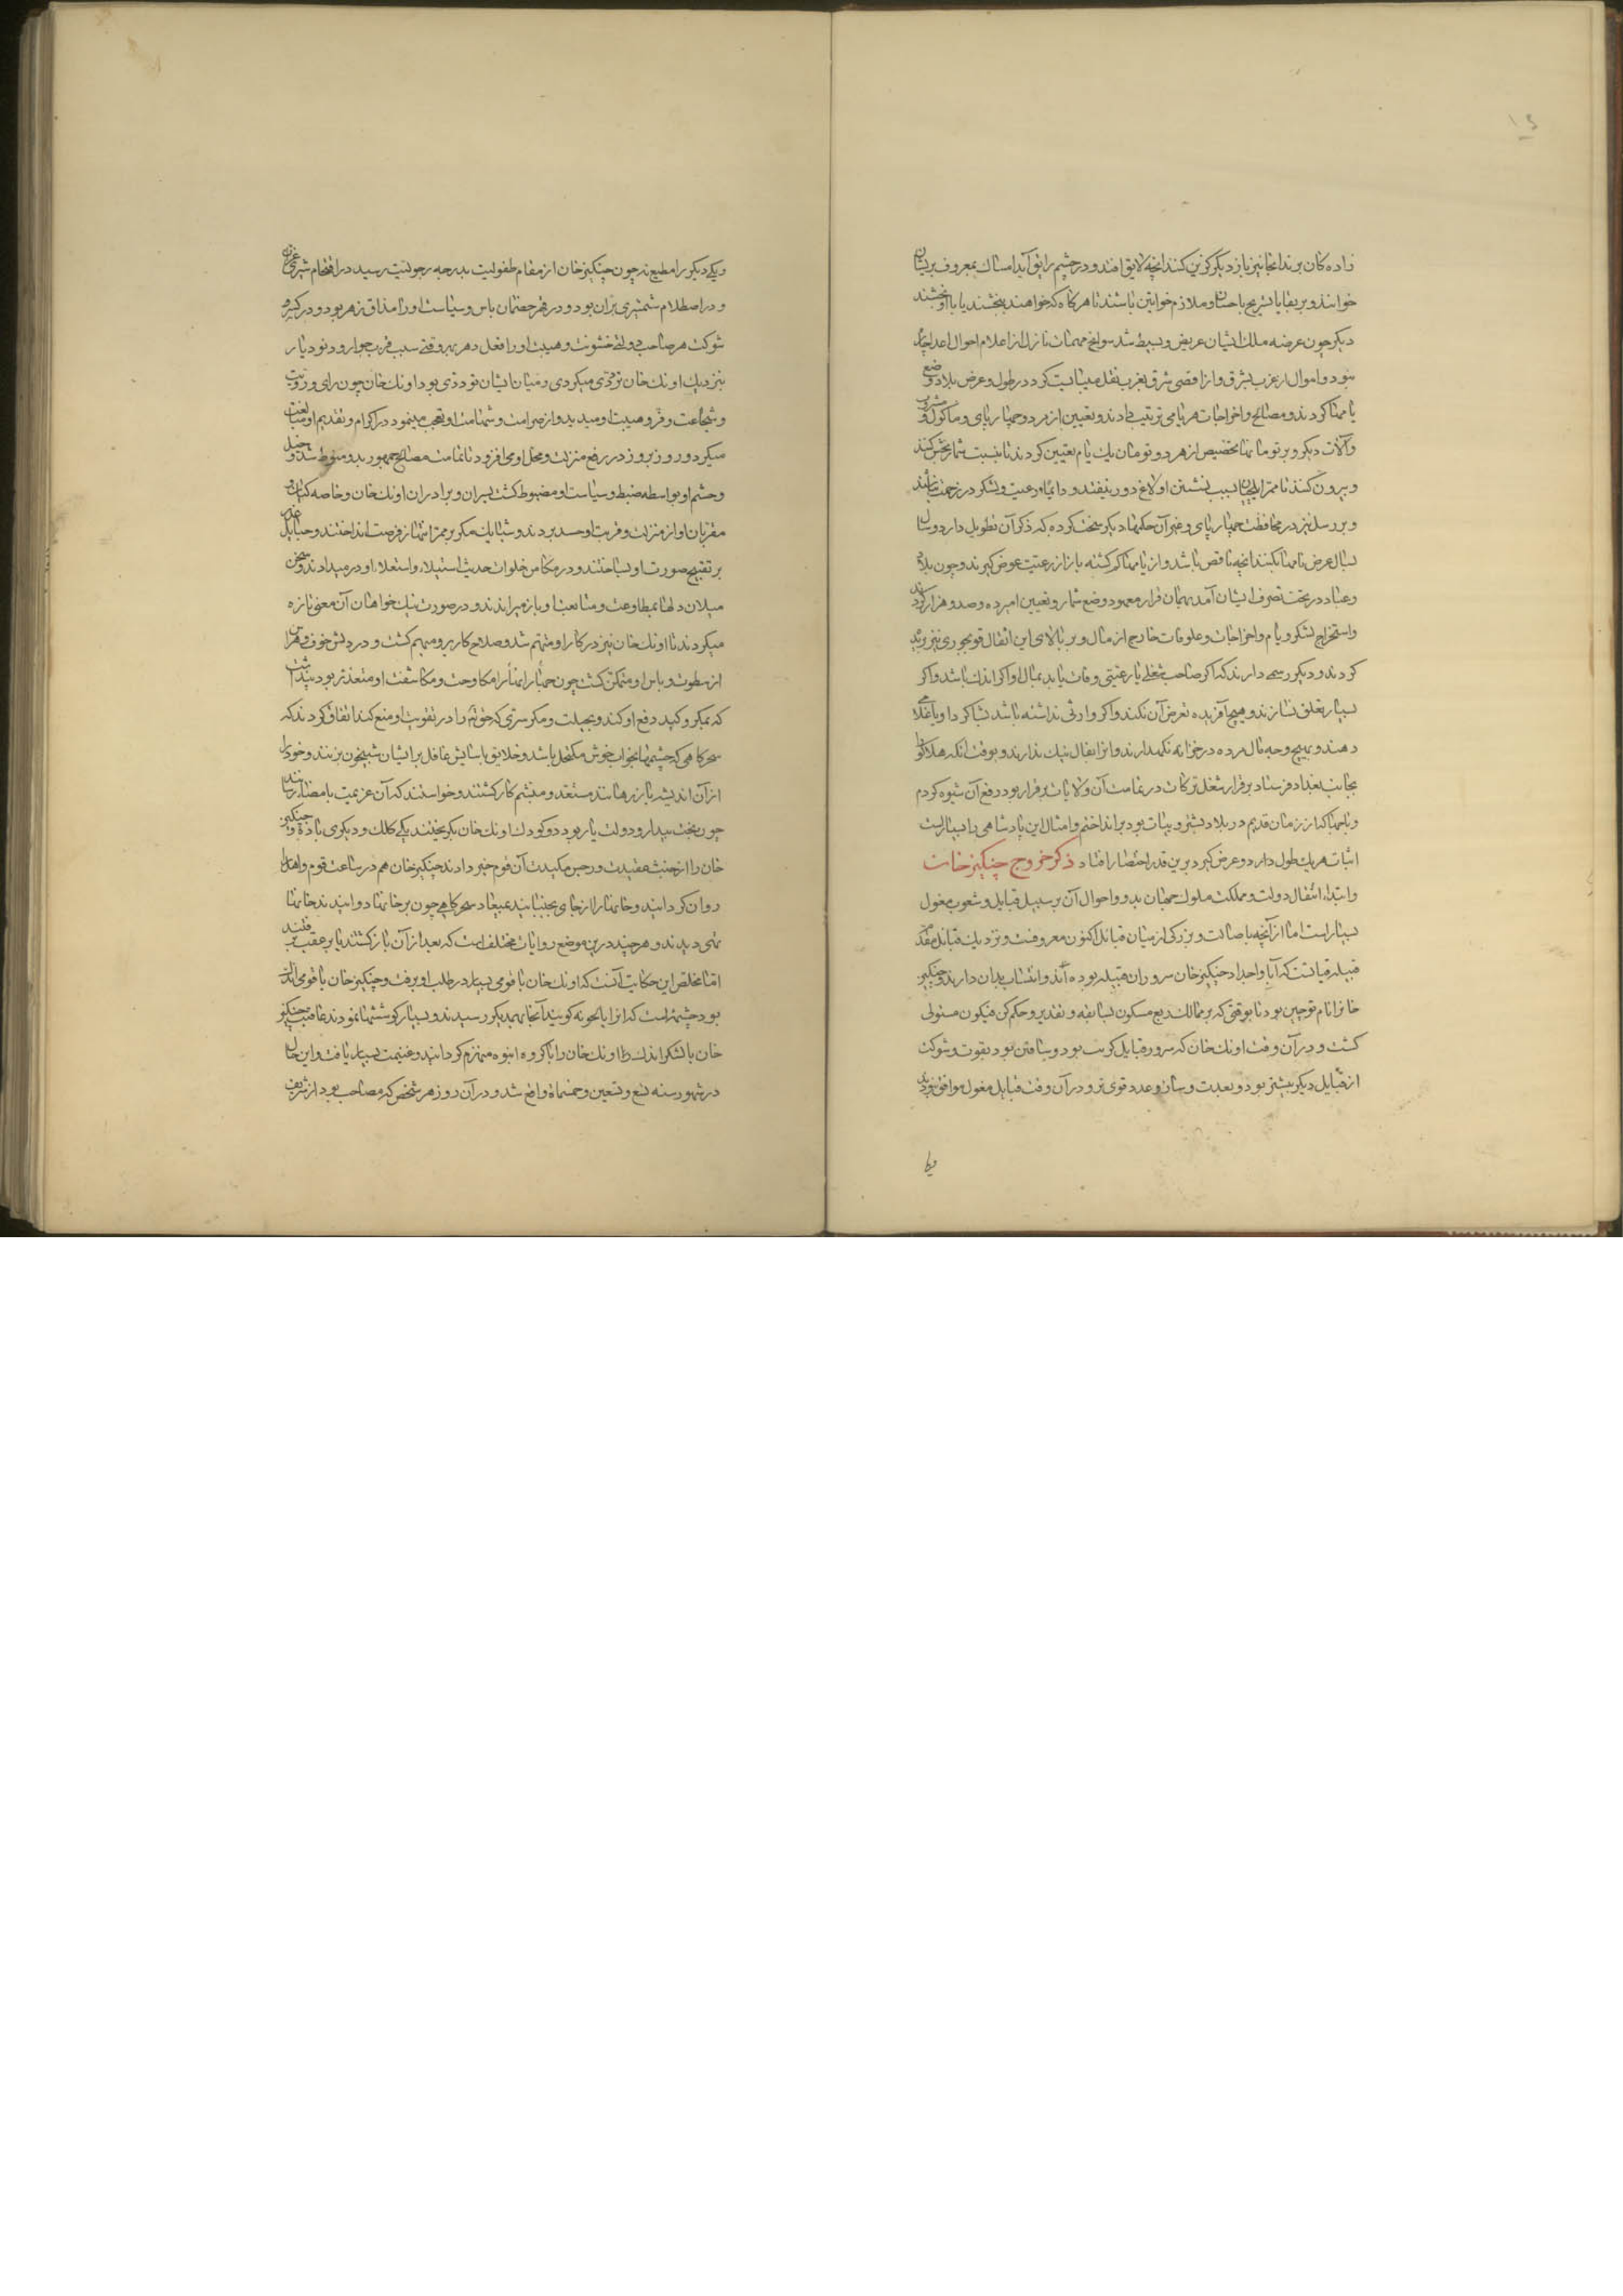 زاده کان برند انجا نیز باز دیکر کزین کنند انچه لایق افتد و در چشم رایق آید امساك بمعروف بریشان
خوانند و بر بقایا تسریح باحسان و ملازم خواتین باشند تا هر کاه که خواهند بخشند یا با او بخسبند
دیکر چون عرصه ملك ایشان عریض و بسیط شد سوانح مهمات نازل از اعلام احوال اعدا چاره
نبود و اموال از غرب بشرق و از اقصی شرق بغرب نقل میبایست کرد در طول و عرض بلاد وضع
یامها کردند و مصالح و اخراجات هر یامی ترتیب دادند و تعیین از مرد و چهار پای و ماکول و مشروب
و آلات دیکر و بر تومانها تخصیص از هر دو تومان یك یام تعیین کردند تا بنسبت شمار بخش کنند
و بیرون کنند تا ممر ایلچیان بسبب نشستن اولاغ دور نیفتد و دایما رعیت و لشکر در زحمت نباشند
و بر رسل نیز در محافظت چهار پای و غیر آن حکمها دیکر سخت کرده که ذکر آن تطویل دارد و سال
بسال عرض یامها بکنند انچه ناقص باشد و از یامها کم کشته باز از رعیت عوض کیرند و چون بلاد
و عباد در تحت تصرف ایشان آمد بهمان قرار معهود وضع شمار و تعیین اسم ده و صد و هزار کردند
و استخراج لشکر و یام و اخراجات و علوفات خارج از مال و بر بالای این اثقال قوبجوری نیز مزید
کردند و دیکر رسمی دارند که اکر صاحب شغلی یا رعیتی وفات یابد بمال او اکر اندك باشد و اکر
بسیار تعلق نسازند و هیچ آفریده تعرض آن نکند و اکر وارثی نداشته باشد بشاکرد او یا غلامی
دهند و بهیچ وجه مال مرده در خزانه نکیرند و انرا بفال نیك ندارند و بوقت انکه هلاکو را
بجانب بغداد فرستاد برقرار شغل ترکات در تمامت آن ولایات برقرار بود رفع آن شیوه کردم
و باجها که از زمان قدیم در بلاد تستر و بیات بود برانداختم و امثال این یاساهای بسیارست
اثبات هریك طول دارد و عرض کیرد برین قدر اختصار افتاد ذکر خروج چنکیز خان
و ابتداء انتقال دولت و مملکت ملوك جهان بدو و احوال آن بر سبیل قبایل و شعوب مغول
بسیار است اما از آنچه باصالت و بزرکی از میان قبایل اکنون معروفست و نزدیك قبایل مقدّم
قبیله قیاتست که آبا و اجداد چنکیز خان سروران قبیله بوده اند و انتساب بدان دارند و چنکیز
خانرا نام توجین بود تا بوقتی که بر ممالك ربع مسکون بسابقه و تقدیر و حکم کن فیکون مستولی
کشت و در آن وقت اونك خان که سرور قبایل کریت بود و ساقتن بود بقوت و شوکت
از قبایل دیکر بیشتر بود و بعدت و ساز و عدد قوی تر و در آن وقت قبایل مغول موافق نبودند
و یکی دیکر را مطیع نه چون چنکیز خان از مقام طفولیت بدرجه رجولیت رسید در اقتحام شیری غرّان
و در اصطلام شمشیری برّان بود و در قهر خصمان باس و سیاست او را مذاق زهر بود و در کسر
شوکت هر صاحب دولتی خشونت و هیبت او را فعل دهر بهر وقتی سبب قرب جوار و دنو دیار
بنزدیك اونك خان تردّدی میکردی و میان ایشان توددی بود اونك خان چون رای و رویت
و شجاعت و فرّ و هیبت او میدید و از صرامت و شهامت او تعجب مینمود در اکرام و تقدیم او مبالغت
میکرد و روز بروز در رفع منزلت و محل او می افزود تا تمامت مصالح جمهور بدو منوط شد و خیل
و حشم او بواسطه ضبط و سیاست او مضبوط کشت پسران و برادران اونك خان و خاصه کتان و
مقربان او از منزلت و قربت او حسد بردند و شبایك مکر بر ممر انتهاز فرصت انداختند و حبایل غدر
بر تقبیح صورت او بساختند و در مکامن خلوات حدیث استیلاء و استعلاء او درمیدادند و سخن
میلان دلها بمطاوعت و متابعت او باز میراندند و در صورت نیك خواهان آن معنی تازه
میکردند تا اونك خان نیز در کار او متهم شد و صلاح کار برو مبهم کشت و در دلش خوف و هراس
از سطوت و باس او متمکن کشت چون جهارا نهارا مکاوحت و مکاشفت او متعذر بود اندیشید
که بمکر و کید دفع او کند و بحیلت و مکر سرّی که خدای را در تقویت او منع کند اتفاق کردند که
سحرکاهی که چشمها بخواب خوش مکتحل باشد و خلایق باسایش غافل بر ایشان شبیخون برند و خود را
از آن اندیشه باز رهانند مستعد و متشمر کار کشتند و خواستند که آن عزیمت بامضا رسانند
چون بخت بیدار و دولت یار بود دو کودك اونك خان بکریختند یکی کلك و دیکری باده و چنکیز
خان را از خبث عقیدت و رجس مکیدت آن قوم خبر دادند چنکیز خان هم در ساعت قوم و اهل را
روان کردانید و خانها را از جای بجنبانید بمیعاد سحرکاهی چون بر خانها دوانیدند خانها
تهی دیدند و هر چند درین موضع روایات مختلف است که بعد از آن باز کشتند یا بر عقب برفتند
امّا مخلص این حکایت آنست که اونك خان با قومی بسیار در طلب او برفت و چنکیز خان با قومی اندك
بود چشمه است که انرا بالجونه کویند آنجا بهمدیکر رسیدند و بسیار کوششها نمودند عاقبت چنکیز
خان با لشکر اندك را اونك خان را با کروه انبوه منهزم کردانید و غنیمت بسیار یافت و این حال
در شهور سنه تسع و تسعین و خمسمائة واقع شد و در آن روز هر شخص که مصاحب بود از شریف
ویکی